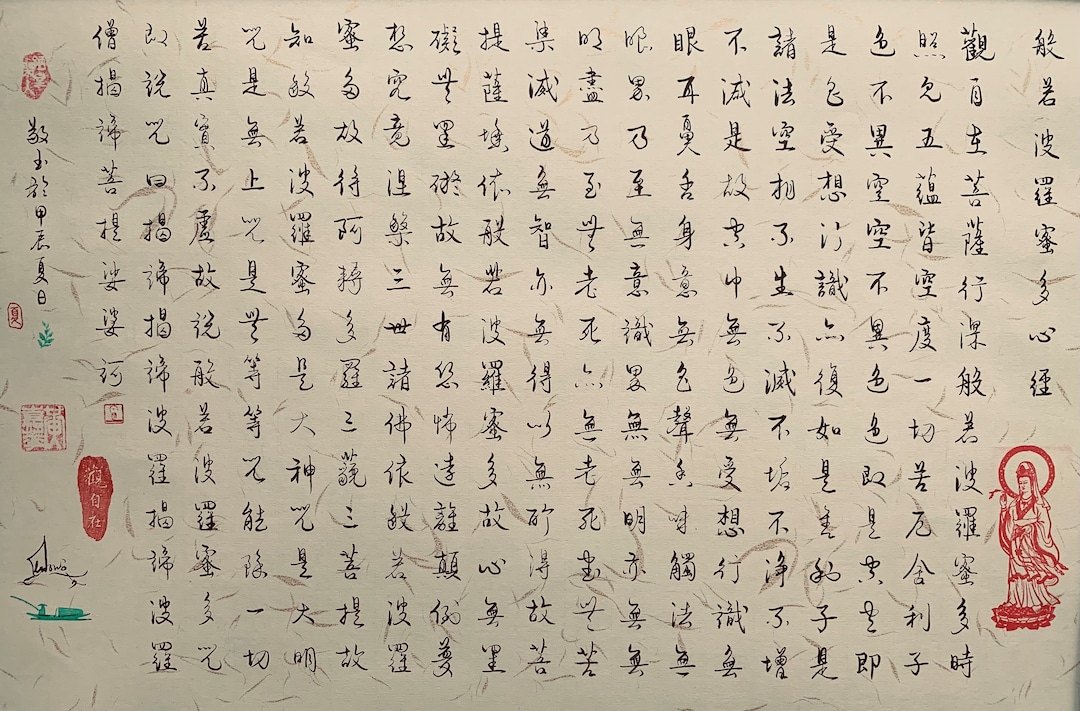 般若波羅蜜多心經
觀自在菩薩行深般若波羅蜜多時
照見五蘊皆空度一切苦厄舍利子
色不異空空不異色色即是空空即
是色受想行識亦復如是舍利子是
諸法空相不生不滅不垢不淨不增
不減是故空中無色無受想行識無
眼耳鼻舌身意無色聲香味觸法無
眼界乃至無意識界無無明亦無無
明盡乃至無老死亦無老死盡無苦
集滅道無智亦無得以無所得故菩
提薩埵依般若波羅蜜多故心無罣
礙無罣礙故無有恐怖遠離顛倒夢
想究竟涅槃三世諸佛依般若波羅
蜜多故得阿耨多羅三藐三菩提故
知般若波羅蜜多是大神咒是大明
咒是無上咒是無等等咒能除一切
苦真實不虛故說般若波羅蜜多咒
即說咒曰揭諦揭諦波羅揭諦波羅
僧揭諦菩提娑婆訶
敬書於甲辰夏日
觀自在